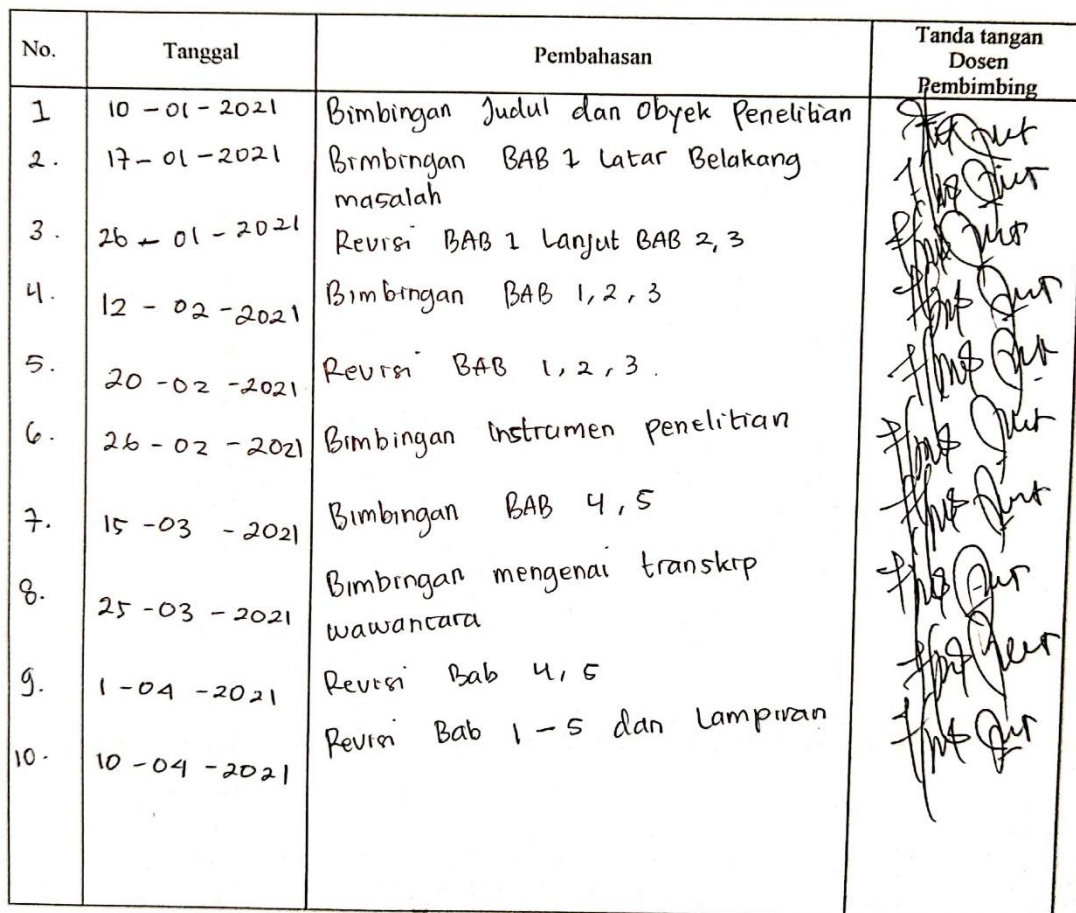 No. Tanggal Pembahasan Tanda tangan
Dosen
Pembimbing
1 10 - 01 - 2021 Bimbingan Judul dan Obyek Penelitian
2. 17 - 01 - 2021 Bimbingan BAB 1 Latar Belakang
masalah
3. 26 - 01 - 2021 Revisi BAB 1 Lanjut BAB 2, 3
4. 12 - 02 - 2021 Bimbingan BAB 1, 2, 3
5. 20 - 02 - 2021 Revisi BAB 1, 2, 3.
6. 26 - 02 - 2021 Bimbingan instrumen penelitian
7. 15 - 03 - 2021 Bimbingan BAB 4, 5
8. 25 - 03 - 2021 Bimbingan mengenai transkip
wawancara
9. 1 - 04 - 2021 Revisi Bab 4, 5
10. 10 - 04 - 2021 Revisi Bab 1 - 5 dan Lampiran